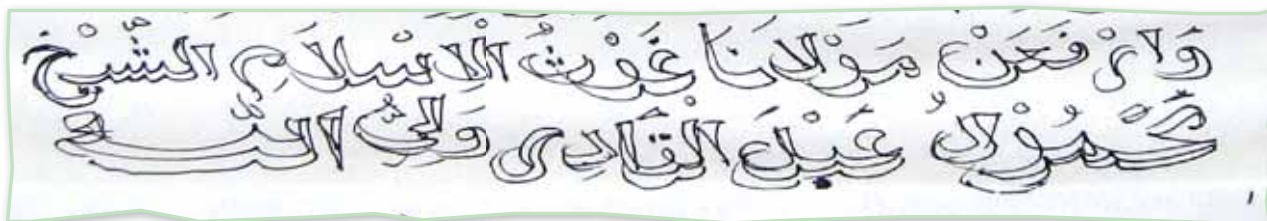 وَارْفَعَنْ مَوْلَانَا غَوْثُ الْاِسْلَامِ الشَّيْخْ
مَحْمُوْدُ عَبْدَ الْقَادِرِ وَلِيُّ اللّه